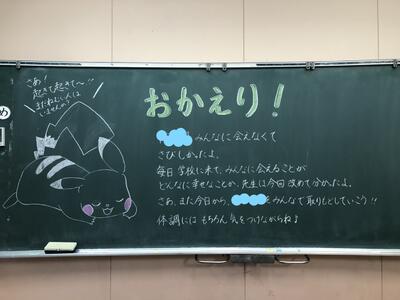 さあ!
起きて起きて〜!!
まだねむい人は
いませんか?
め
おかえり!
みんなに会えなくて
さびしかったよ。
毎日 学校に来て、みんなに会えることが
どんなに幸せなことか、先生は今回 改めて分かったよ。
さあ、また今日から、をみんなで取りもどしていこう!!
体調には もちろん 気をつけながらね♪